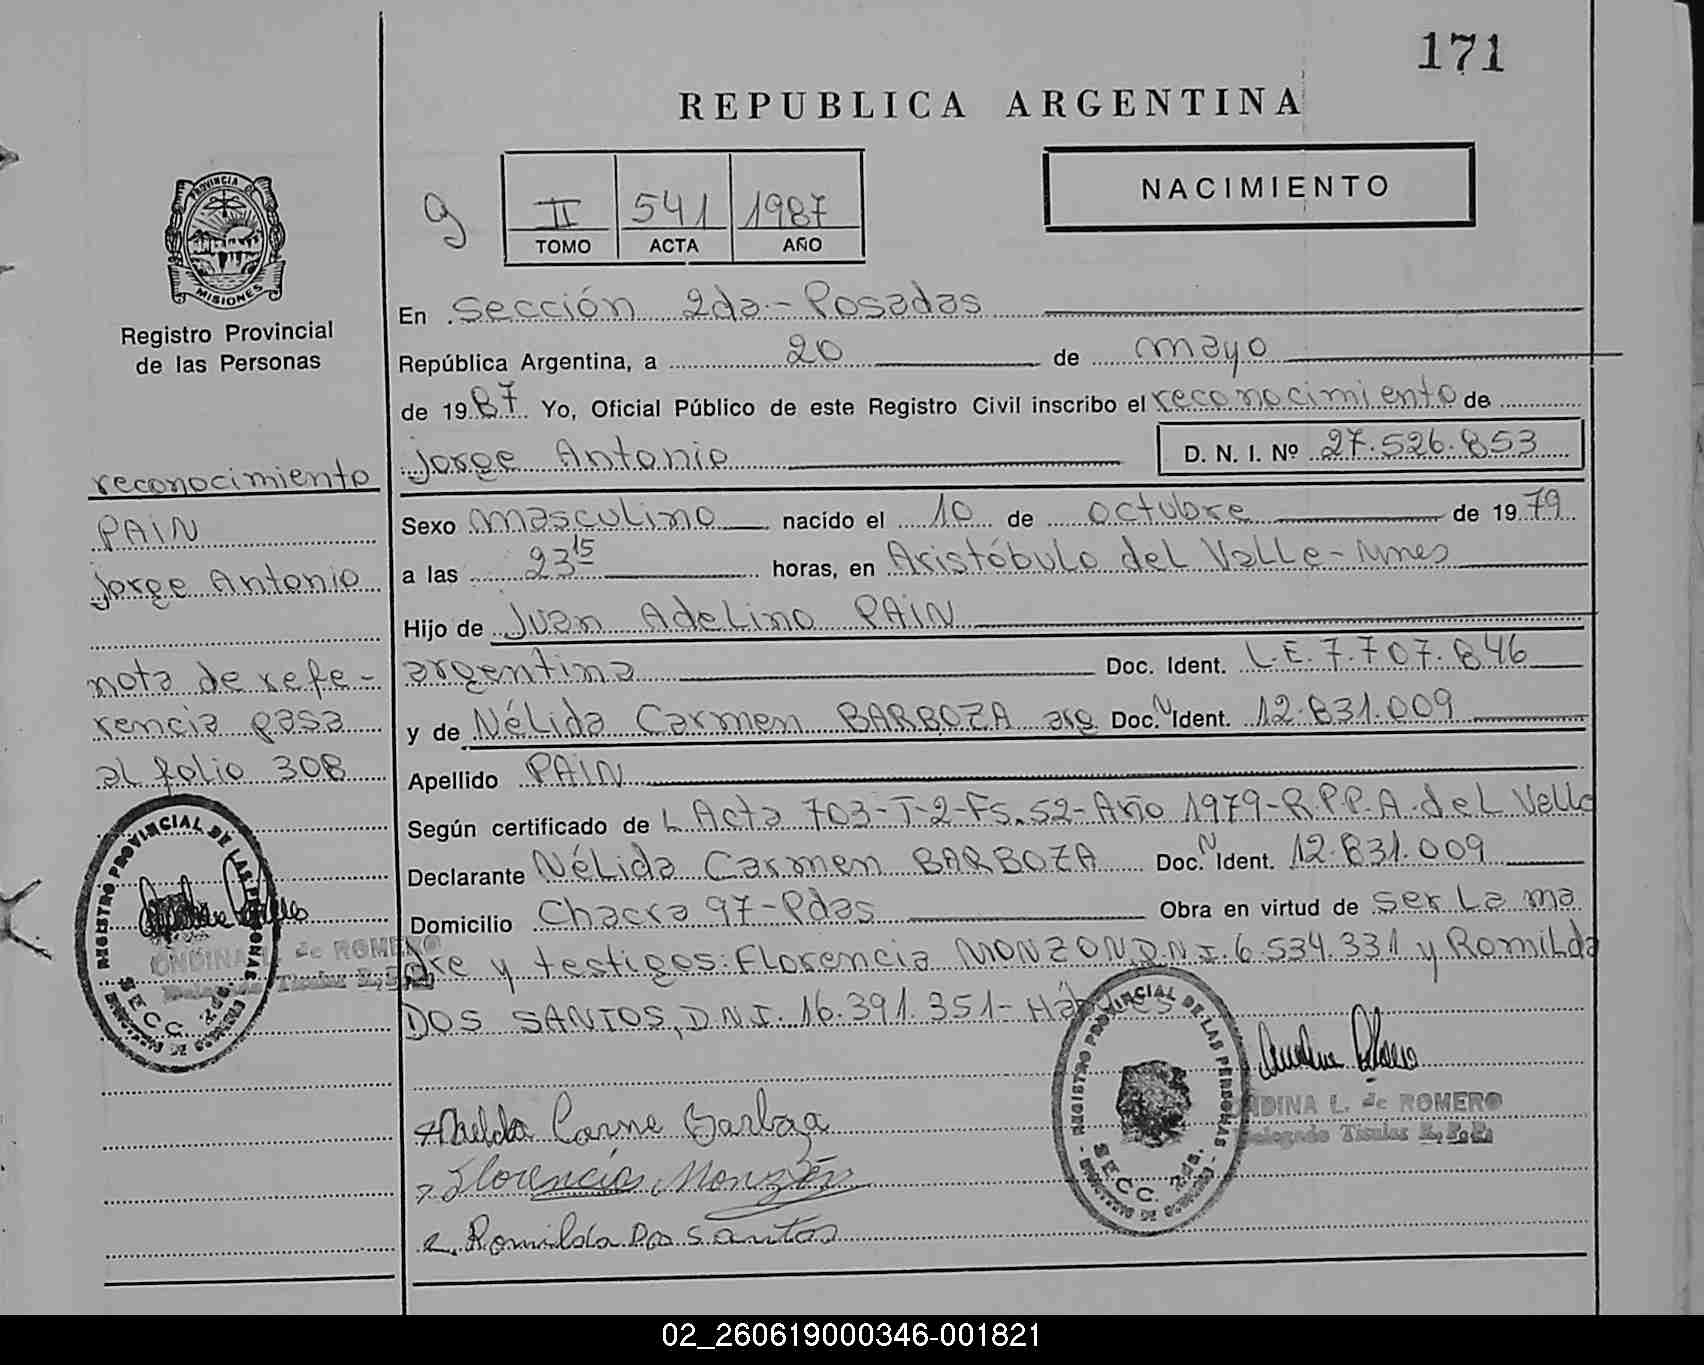 171
REPUBLICA ARGENTINA
NACIMIENTO
g
II 541 1987
TOMO ACTA AÑO
PROVINCIA DE
MISIONES
Registro Provincial
de las Personas
En Sección 2da.- Posadas
República Argentina, a 20 de mayo
de 1987 Yo, Oficial Público de este Registro Civil inscribo el reconocimiento de
Jorge Antonio D. N. I. Nº 27.526.853
reconocimiento
PAIN
Jorge Antonio
nota de refe-
rencia pasa
al folio 308
Sexo masculino nacido el 10 de octubre de 1979
a las 23 15 horas, en Aristóbulo del Valle - Mnes
Hijo de Juan Adelino PAIN
argentina Doc. Ident. L.E. 7.707.846
y de Nélida Carmen BARBOZA arg. Doc. Ident. 12.831.009
Apellido PAIN
Según certificado de L Acta 703-T-2-Fs.52-Año 1979-R.P.P.A. del Valle
Declarante Nélida Carmen BARBOZA Doc. Ident. 12.831.009
Domicilio Chacra 97-Pdas Obra en virtud de ser La ma
dre y testigos: Florencia MONZON, D.N.I. 6.534.331 y Romilda
DOS SANTOS, D.N.I. 16.391.351- Hábiles
REGISTRO PROVINCIAL DE LAS PERSONAS
SECC. 2da.
ONDINA L. de ROMERO
Delegado Titular R.P.P.
Nelida Carme Barboza
Florencia Monzón
Romilda Dos Santos
REGISTRO PROVINCIAL DE LAS PERSONAS
SECC. 2da.
ONDINA L. de ROMERO
Delegado Titular R.P.P.
02_260619000346-001821